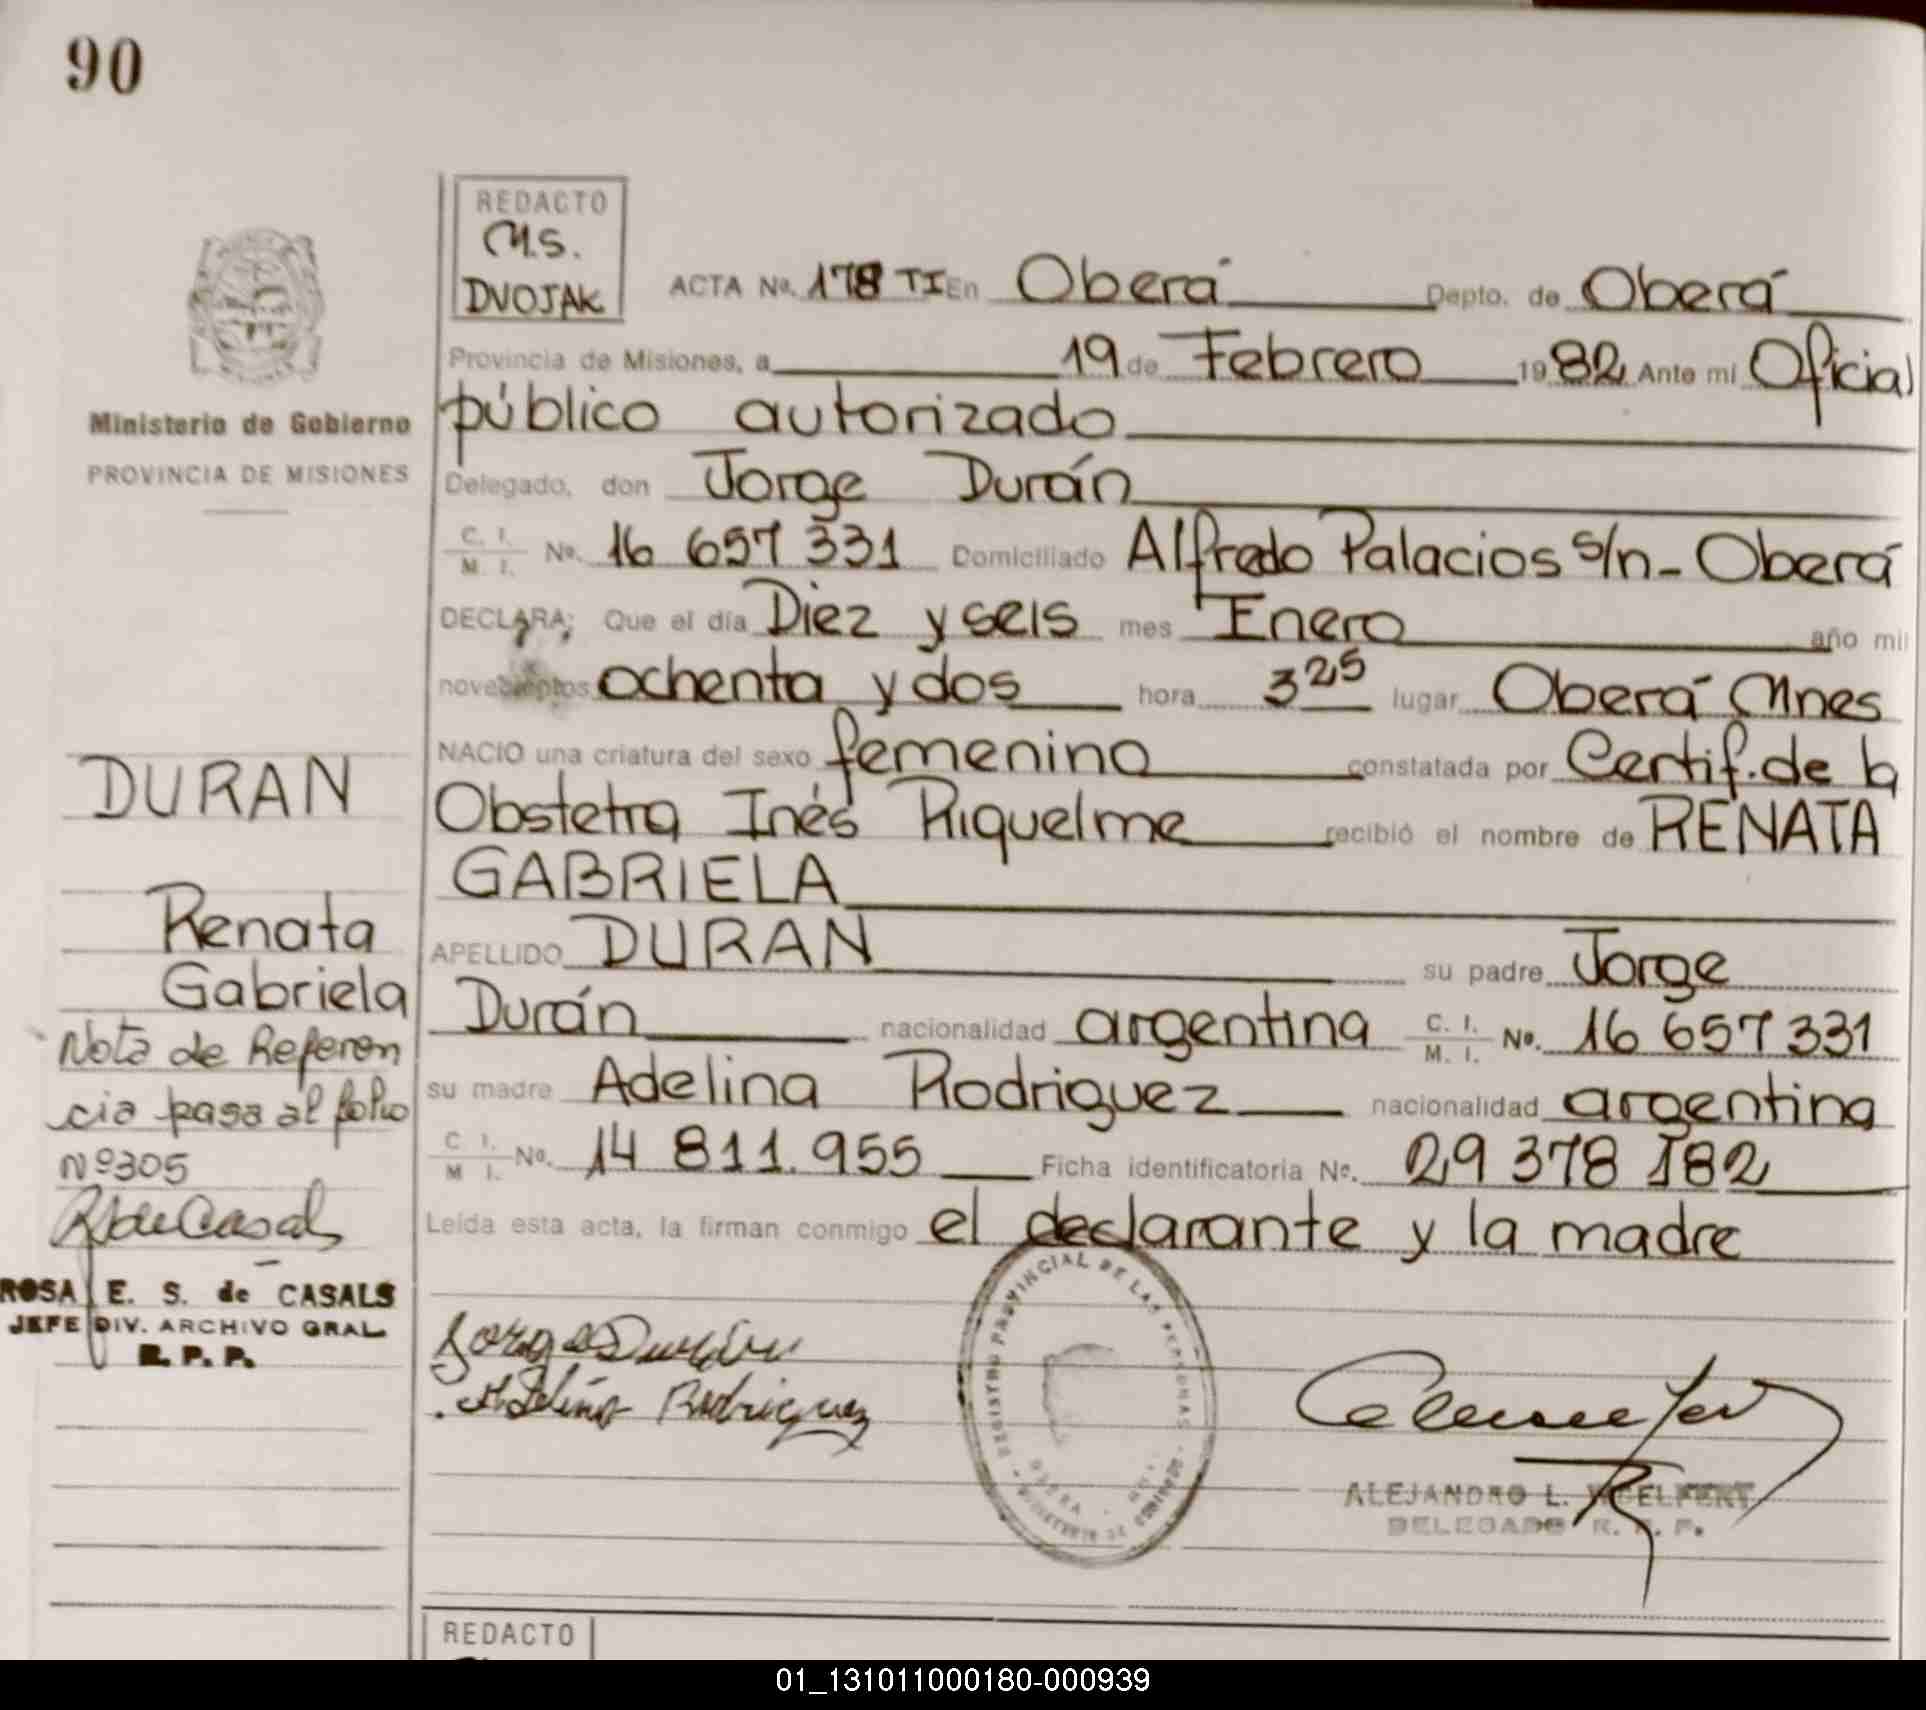 90
REDACTO
M.S.
DVOJAK
ACTA No. 178 TI En Oberá Depto. de Oberá
Provincia de Misiones, a 19 de Febrero 1982 Ante mi Oficial
público autorizado
Delegado, don Jorge Durán
C. I. / M. I. No. 16 657 331 Domiciliado Alfredo Palacios s/n - Oberá
DECLARA; Que el día Diez y seis mes Enero año mil
novecientos ochenta y dos hora 3 25 lugar Oberá Mnes
NACIO una criatura del sexo femenino constatada por Certif. de la
Obstetra Inés Riquelme recibió el nombre de RENATA
GABRIELA
APELLIDO DURAN su padre Jorge
Durán nacionalidad argentina C. I. / M. I. No. 16 657 331
su madre Adelina Rodriguez nacionalidad argentina
C I. / M I. No. 14 811.955 Ficha identificatoria No. 29 378 182
Leída esta acta, la firman conmigo el declarante y la madre
Jorge Durán
Adelina Rodriguez
REGISTRO PROVINCIAL DE LAS PERSONAS
OBERA
ALEJANDRO L. WOELFERT
DELEGADO R. P. P.
Ministerio de Gobierno
PROVINCIA DE MISIONES
DURAN
Renata
Gabriela
Nota de Referen
cia pasa al folio
Nº 305
R de Casals
ROSA E. S. de CASALS
JEFE DIV. ARCHIVO GRAL
R. P. P.
REDACTO
01_131011000180-000939